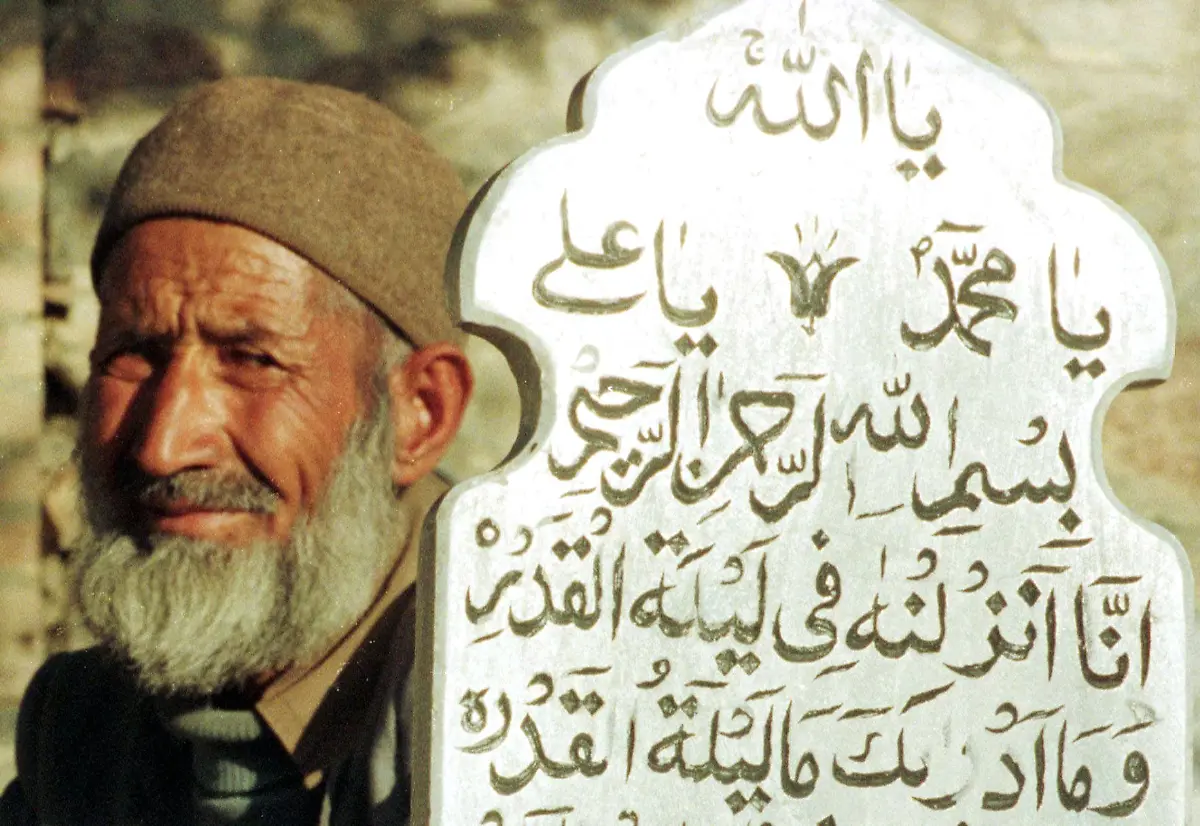 یا اللہ
یا محمد یا علی
بِسْمِ اللهِ الرَّحْمٰنِ الرَّحِیْمِ
اِنَّا اَنْزَلْنٰهُ فِیْ لَیْلَةِ الْقَدْرِ
وَمَا اَدْرٰىكَ مَا لَیْلَةُ الْقَدْرِ